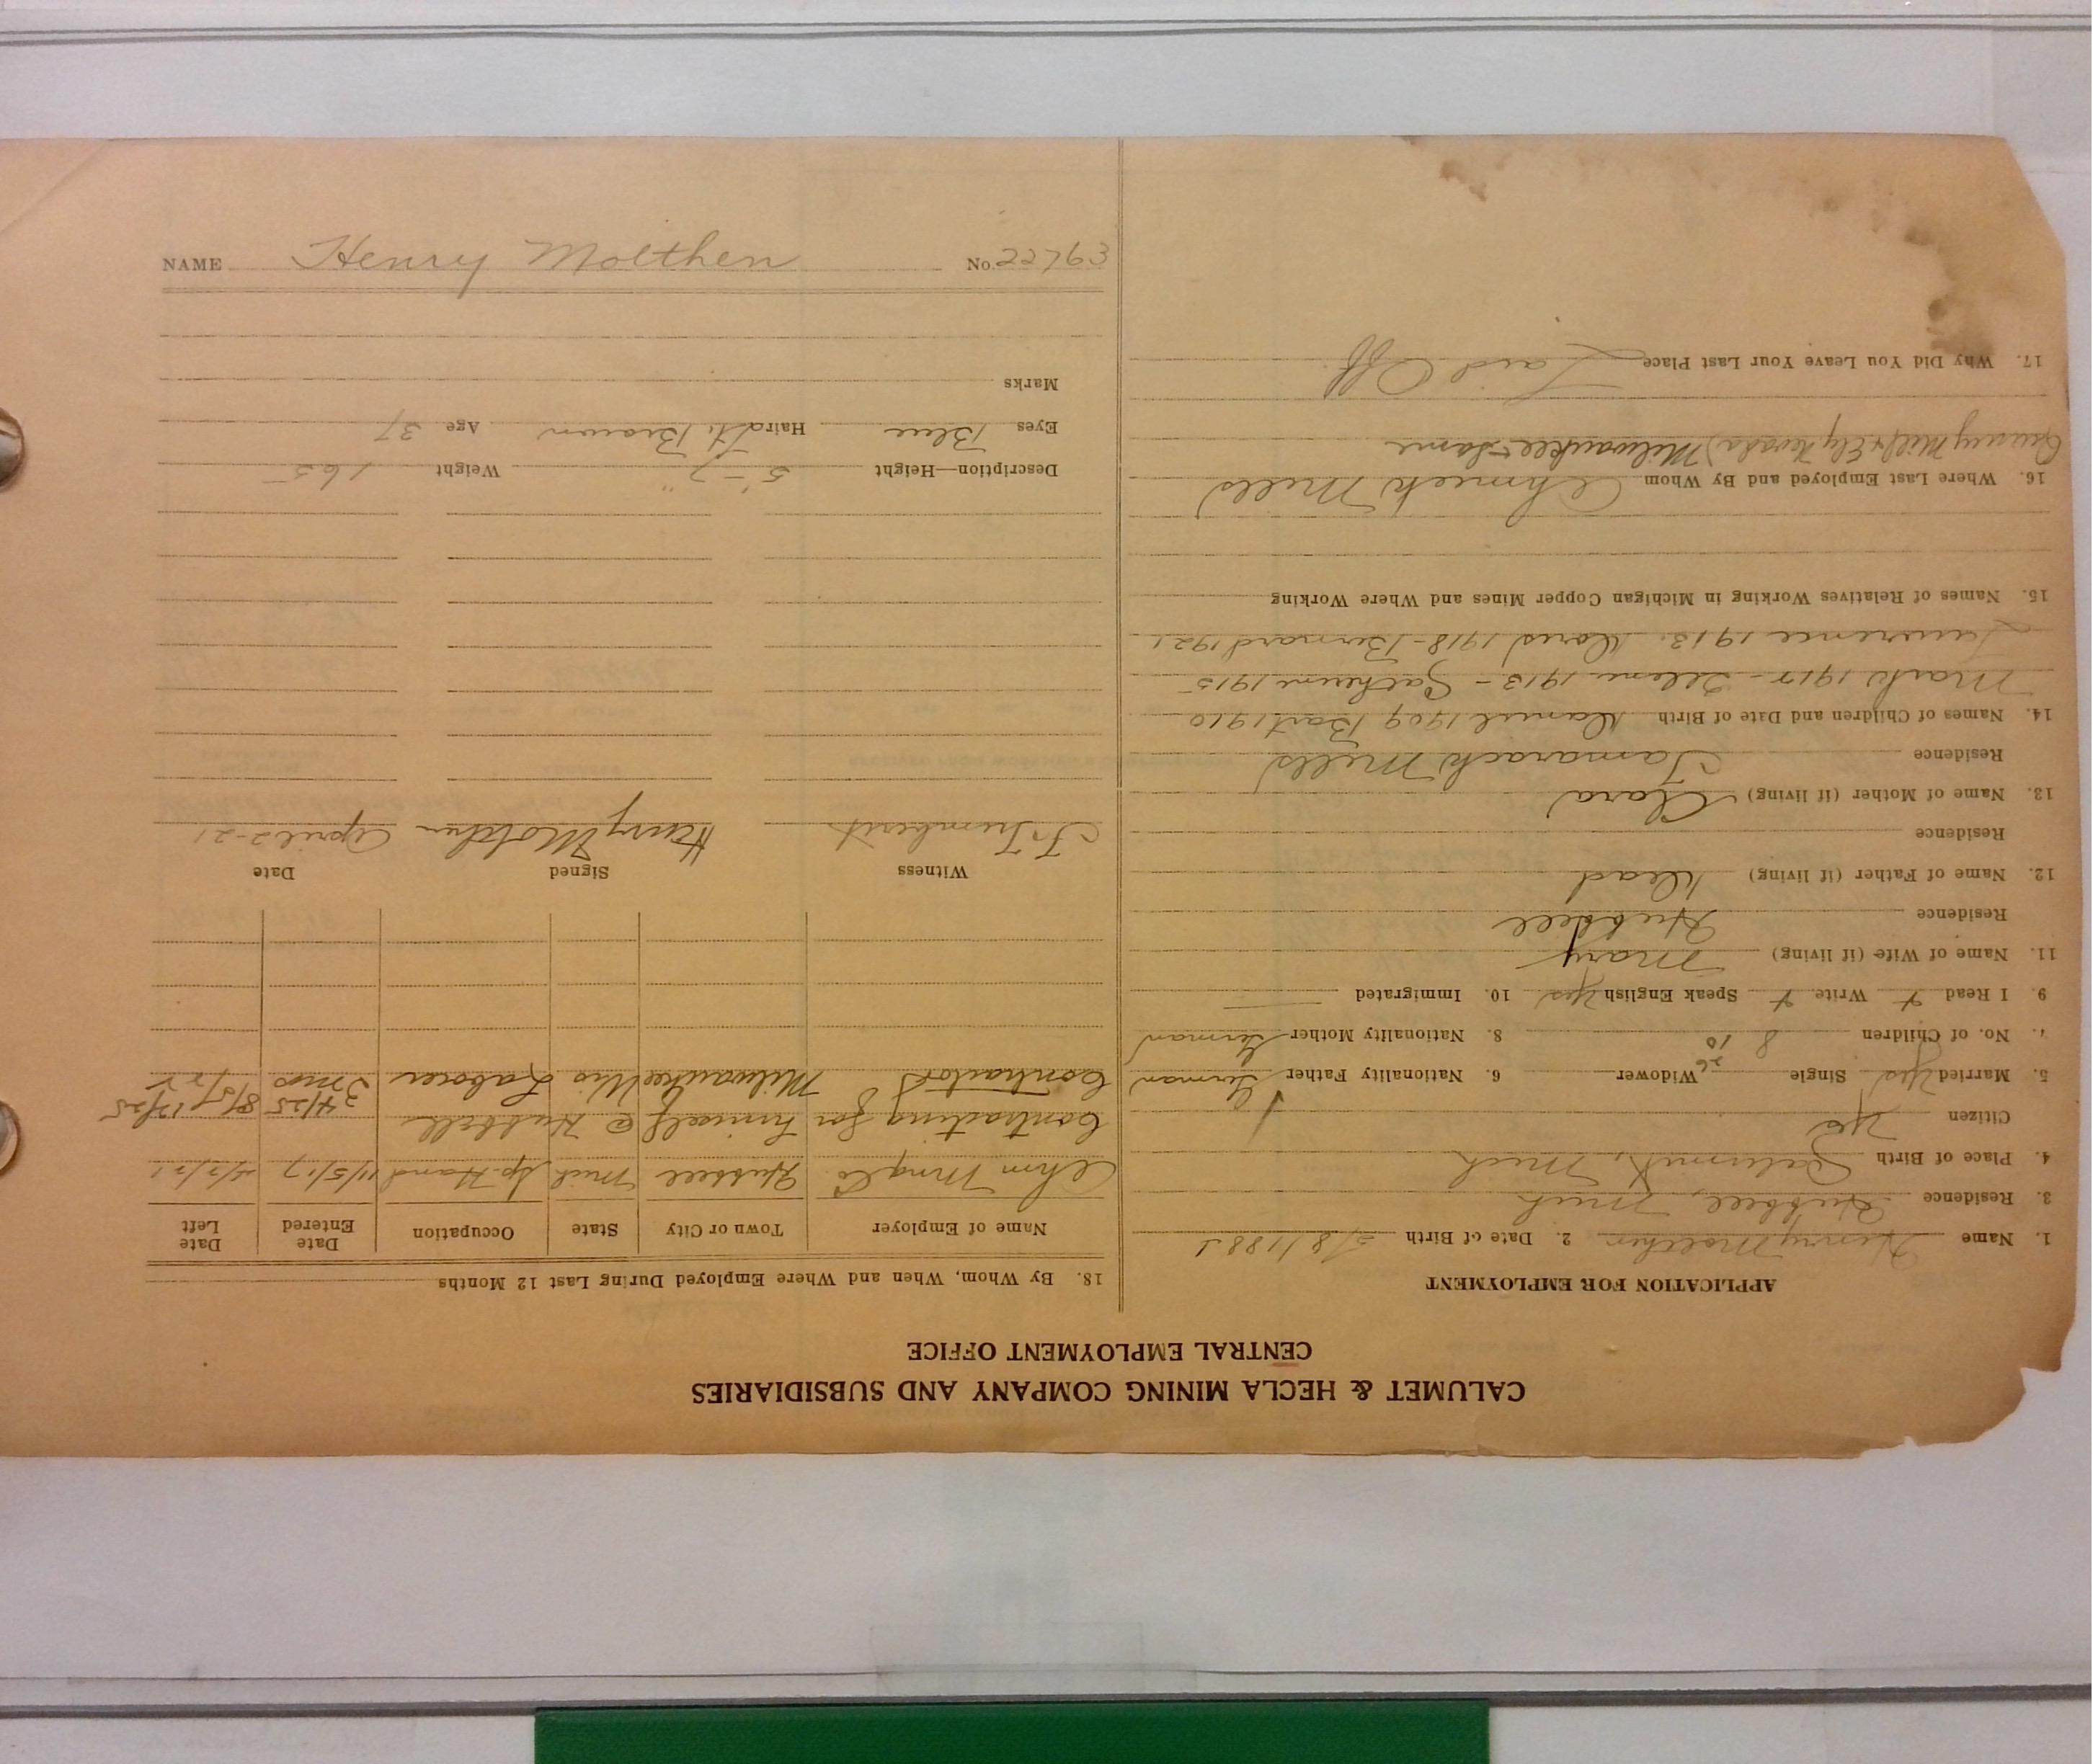 CALUMET & HECLA MINING COMPANY AND SUBSIDIARIES
CENTRAL EMPLOYMENT OFFICE
APPLICATION FOR EMPLOYMENT
1. Name Henry Molthen 2. Date of Birth 8/188
3. Residence Hubbell, Mich
4. Place of Birth Calumet, Mich
Citizen Yes
5. Married Yes Single Widower 26 6. Nationality Father German
7. No. of Children 8 10 8. Nationality Mother German
9. I Read + Write + Speak English Yes 10. Immigrated
11. Name of Wife (if living) Mary
Residence Hubbell
12. Name of Father (if living) Dead
Residence
13. Name of Mother (if living) Clara
Residence Tamarack Mills
14. Names of Children and Date of Birth Daniel 1909 Bart 1910
Mark 191 - 1913 - Catherine 1915
Lawrence 1913. Doris 1918 - Bernard 1921
15. Names of Relatives Working in Michigan Copper Mines and Where Working
16. Where Last Employed and By Whom Ahmeek Mills
Quincy Mill + Ely Nevada) Milwaukee + same
17. Why Did You Leave Your Last Place Laid Off
18. By Whom, When and Where Employed During Last 12 Months
Name of Employer Town or City State Occupation Date Entered Date Left
Ahm Mng Co. Hubbell Mich Hand 11/5/17 4/2/21
Contracting for himself @ Hubbell 4/25 12/25
Contractor Milwaukee Wis Laborer 3 mos
Witness Signed Date
Henry Molthen April 2-21
Description—Height 5'-7" Weight 165
Eyes Blue Hair Lt. Brown Age 37
Marks
NAME Henry Molthen No. 22763